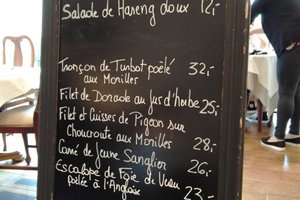 Salade de Hareng doux 12,-
Tronçon de Turbot poêlé 32,-
aux Morilles
Filet de Dorade au Jus d'herbe 25,-
Filet et Cuisses de Pigeon sur
Choucroute aux Morilles 28,-
Carré de Jeune Sanglier 26,-
Escalope de Foie de Veau
Poêlée à l'Anglaise 23,-